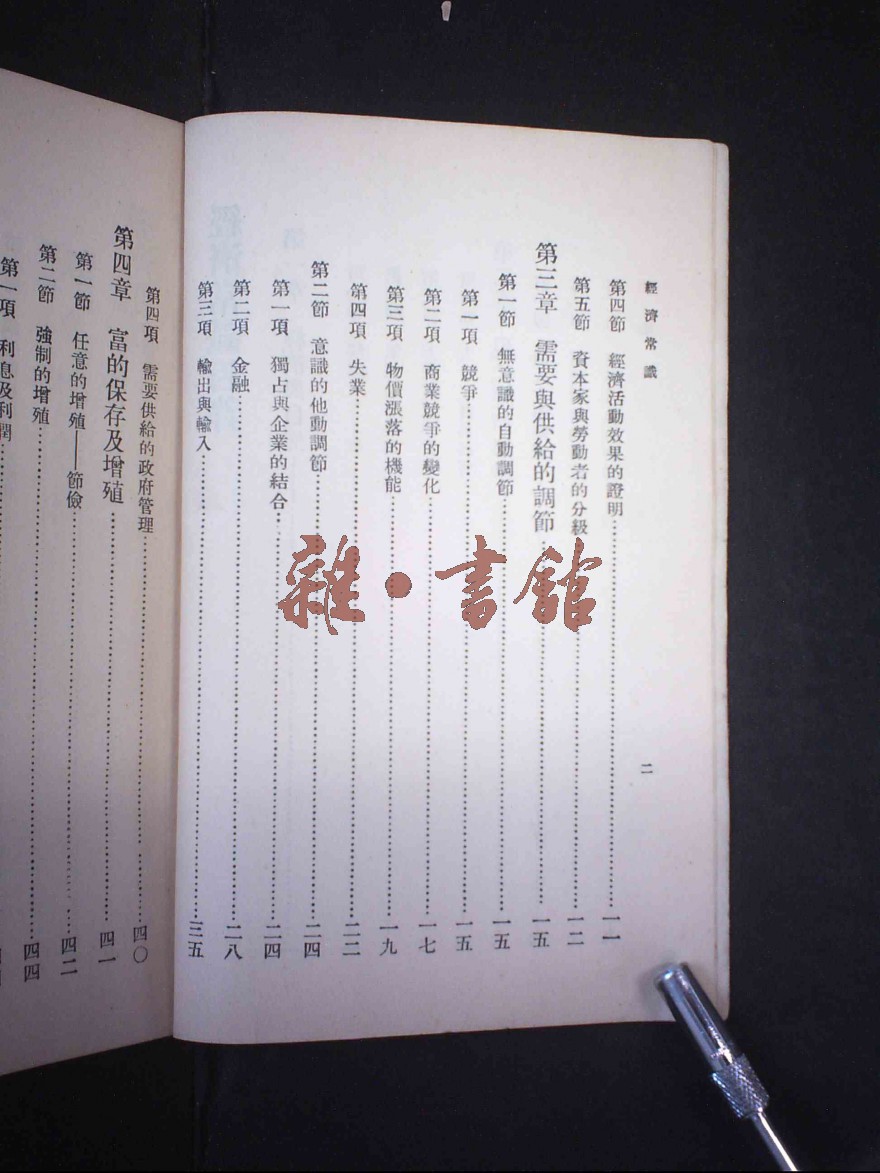 經濟常識
二
第四節 經濟活動效果的證明……一一
第五節 資本家與勞動者的分級……一二
第三章 需要與供給的調節……一五
第一節 無意識的自動調節……一五
第一項 競爭……一五
第二項 商業競爭的變化……一七
第三項 物價漲落的機能……一九
第四項 失業……二二
第二節 意識的他動調節……二四
第一項 獨占與企業的結合……二四
第二項 金融……二八
第三項 輸出與輸入……三五
第四項 需要供給的政府管理……四〇
第四章 富的保存及增殖……四一
第一節 任意的增殖——節儉……四二
第二節 強制的增殖……四四
第一項 利息及利潤……
雜·書館